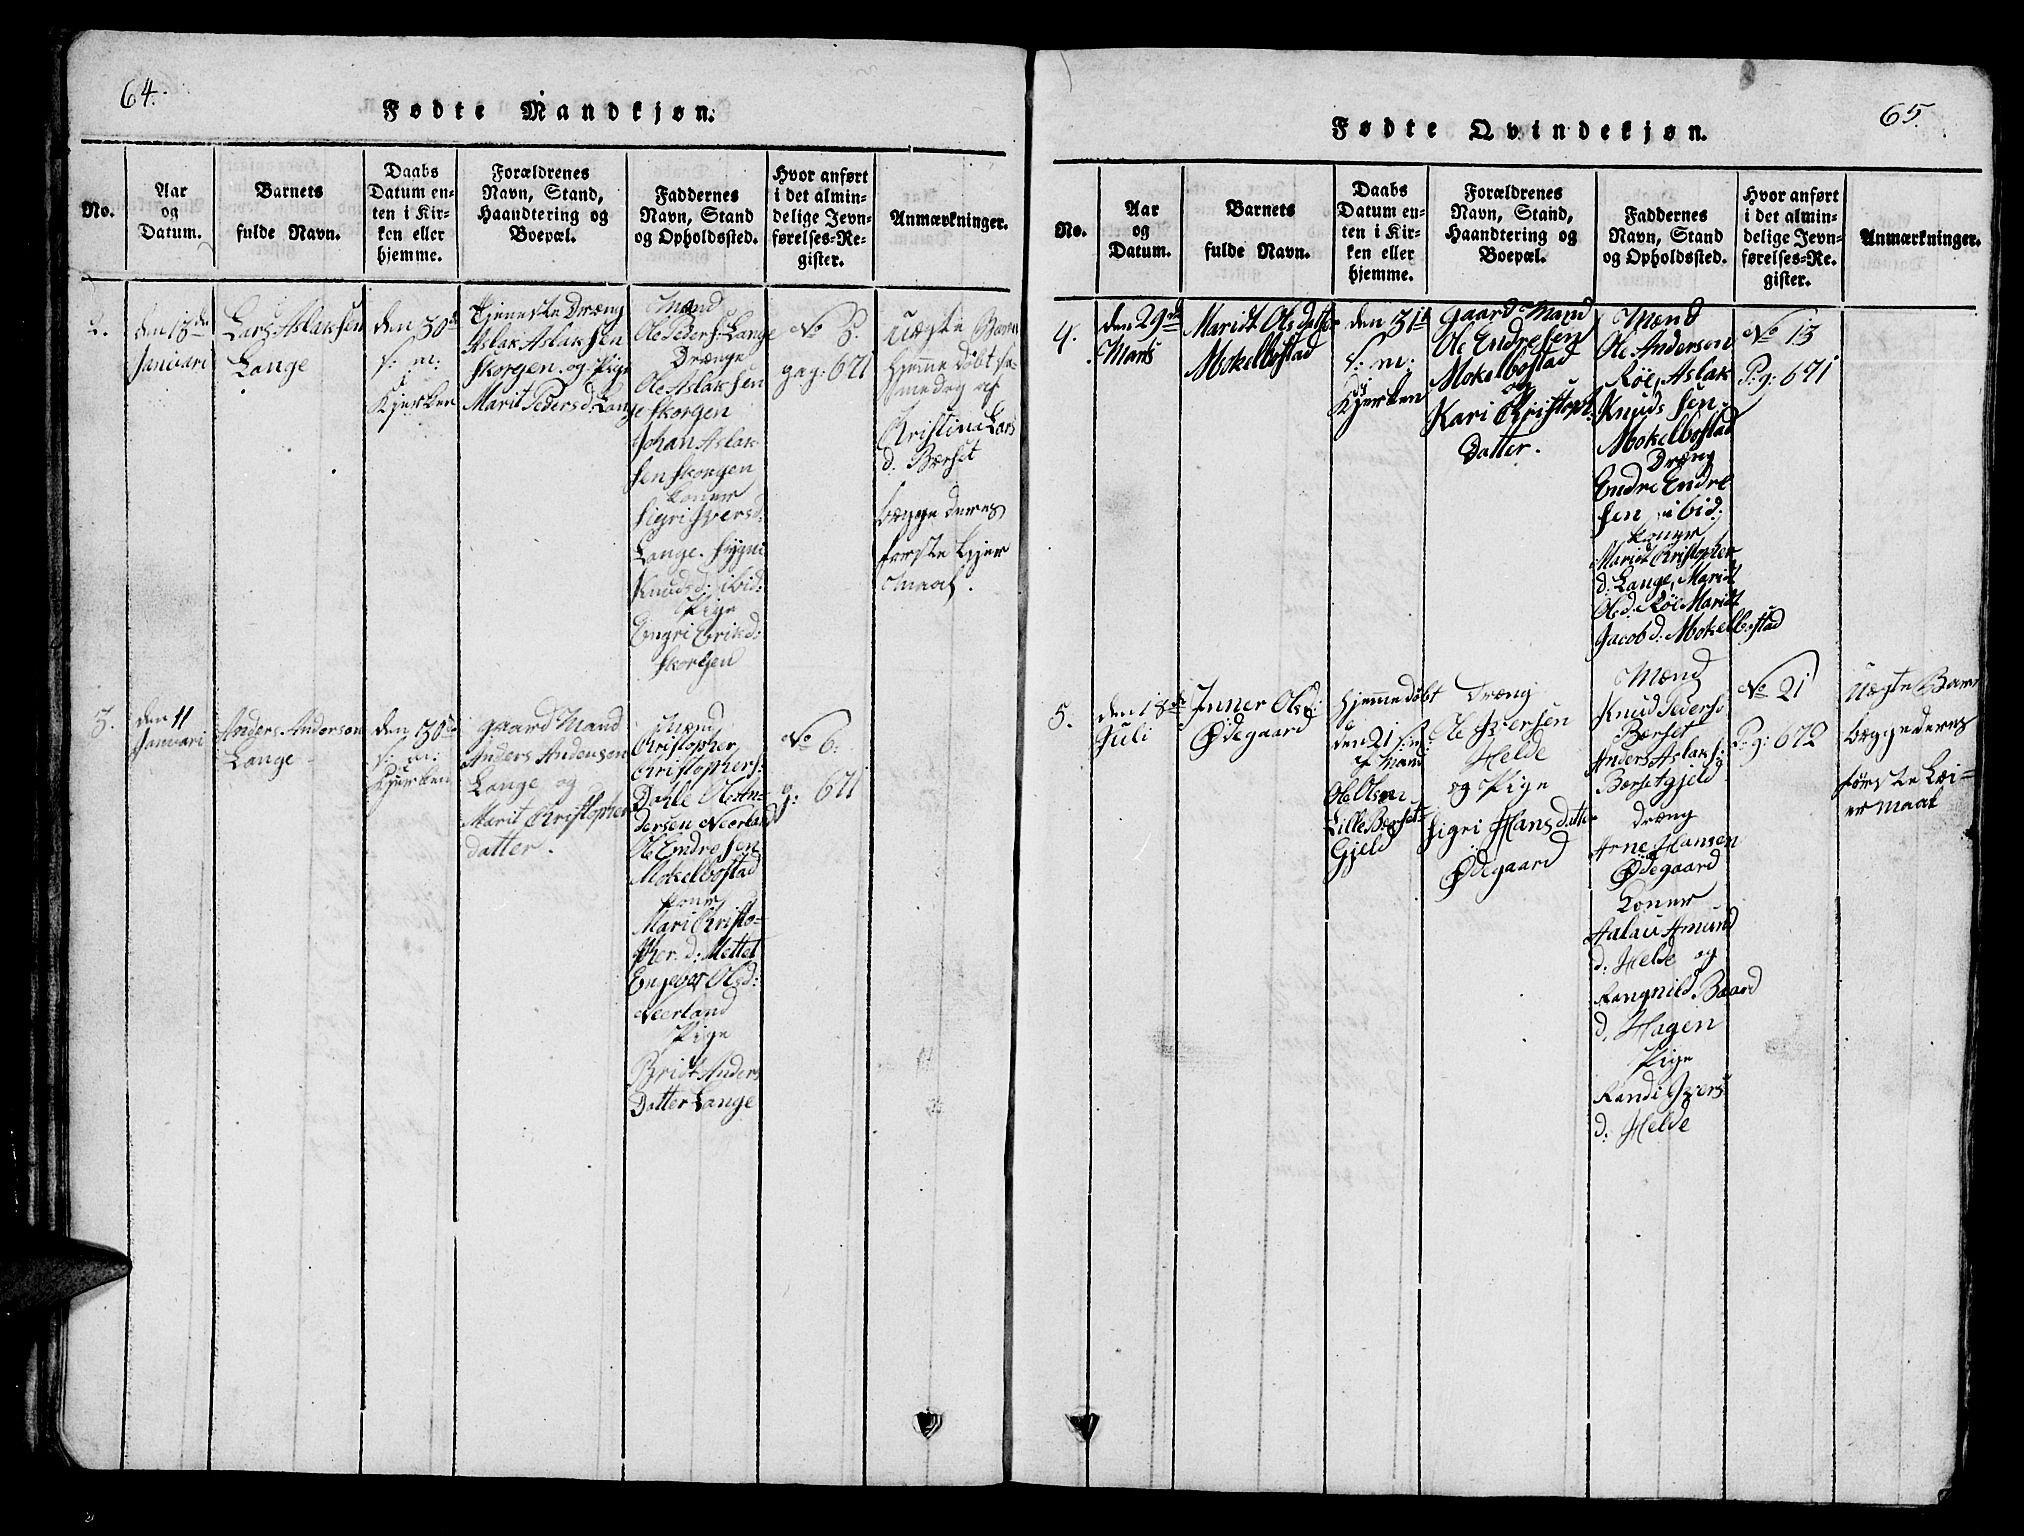 64.
Fødte Mandkjøn.
No.
Aar
og
Datum.
Barnets
fulde Navn.
Daabs
Datum en-
ten i Kir-
ken eller
hjemme.
Forældrenes
Navn, Stand,
Haandtering og
Boepæl.
Faddernes
Navn, Stand
og Opholdssted.
Hvor anført
i det almin-
delige Jevn-
førelses-Re-
gister.
Anmærkninger.
2.
den 13de
Januari
Lars Aslaksen
Lange
den 30de
s: m:
Kjerken
Tjeneste Dræng
Aslak Aslaksen
Skorgen og Pige
Marit Pedersd: Lange
Mænd
Ole Peders: Lange
Drænge
Ole Aslaksen
Skorgen
Johan Aslak
sen Skorgen
Koner
Sigri Iversd:
Lange. Sygni
Knudsd: ibid:
Pige
Engri Erikd:
Skorgen
No 5.
pag: 671
Uægte Barn
hjemme døbt sa-
me dag af
Kristine Lars
d. Bærset
begge deres
første Lejer
maal.
3.
den 11
Januari
Anders Anderson
Lange
den 30de
s: m:
Kjerken
gaard Mand
Anders Anderson
Lange og
Marit Kristopher
datter.
Mænd
Kristopher
Kristophers:
Dahle Ole An-
dersen Neerland
Ole Endresen
Mokelbostad
Koner
Mari Kristo-
pher. d: Mettet
Engebor Olsd:
Neerland
Pige
Bridt Anders
Datter Lange
No 6:
g: 671
65.
Fødte Qvindekjøn.
No.
Aar
og
Datum.
Barnets
fulde Navn.
Daabs
Datum en-
ten i Kir-
ken eller
hjemme.
Forældrenes
Navn, Stand,
Haandtering og
Boepæl.
Faddernes
Navn, Stand
og Opholdssted.
Hvor anført
i det almin-
delige Jevn-
førelses-Re-
gister.
Anmærkninger.
4.
den 29de
Marts
Maridt Olsdatter
Mokelbostad
den 31te
s: m:
Kjerken
Gaard Mand
Ole Endresen
Mokelbostad
og
Kari Kristoph:
Datter.
Mænd
Ole Anderson
Röe, Aslak
Knuds sen
Mokelbostad
Dræng
Endre Endre
sen ibid:
Koner
Maridt Kristopher
d: Lange, Maridt
Olsd: Röe Maridt
Jacobd: Mokelbostad
No 13
Pg: 671
5.
den 18de
Juli
Inner Olsd:
Ødegaard
hjemmedøbt
den 21 s: m:
af Mand
Ole Olsen
Lille Bærset-
Gjeld
Dræng
Ole Iversen
Helde
og Pige
Sigri Hansdatter
Ødegaard
Mænd
Knud Peders:
Bærset
Anders Aslaks:
Bersetgjeld
Dræng
Arne Hansen
Ødegaard
Koner
Aalau Amund
d: Helde og
Rangnild Baard
d. Hagen
Pige
Randi Ivers
d: Helde
No 21
Pg: 672
Uægte Barn
begge deres
første Lei-
er maal